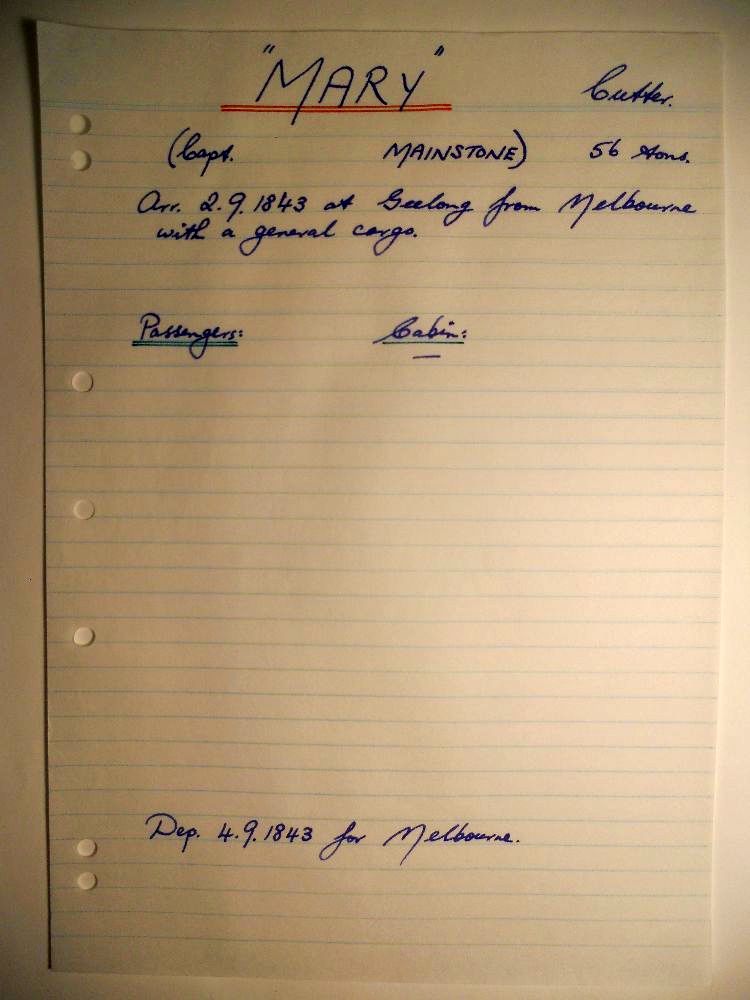 "MARY" Cutter.
(Capt. MAINSTONE) 56 tons.
Arr. 2.9.1843 at Geelong from Melbourne
with a general cargo.
Passengers: Cabin:
—
Dep. 4.9.1843 for Melbourne.